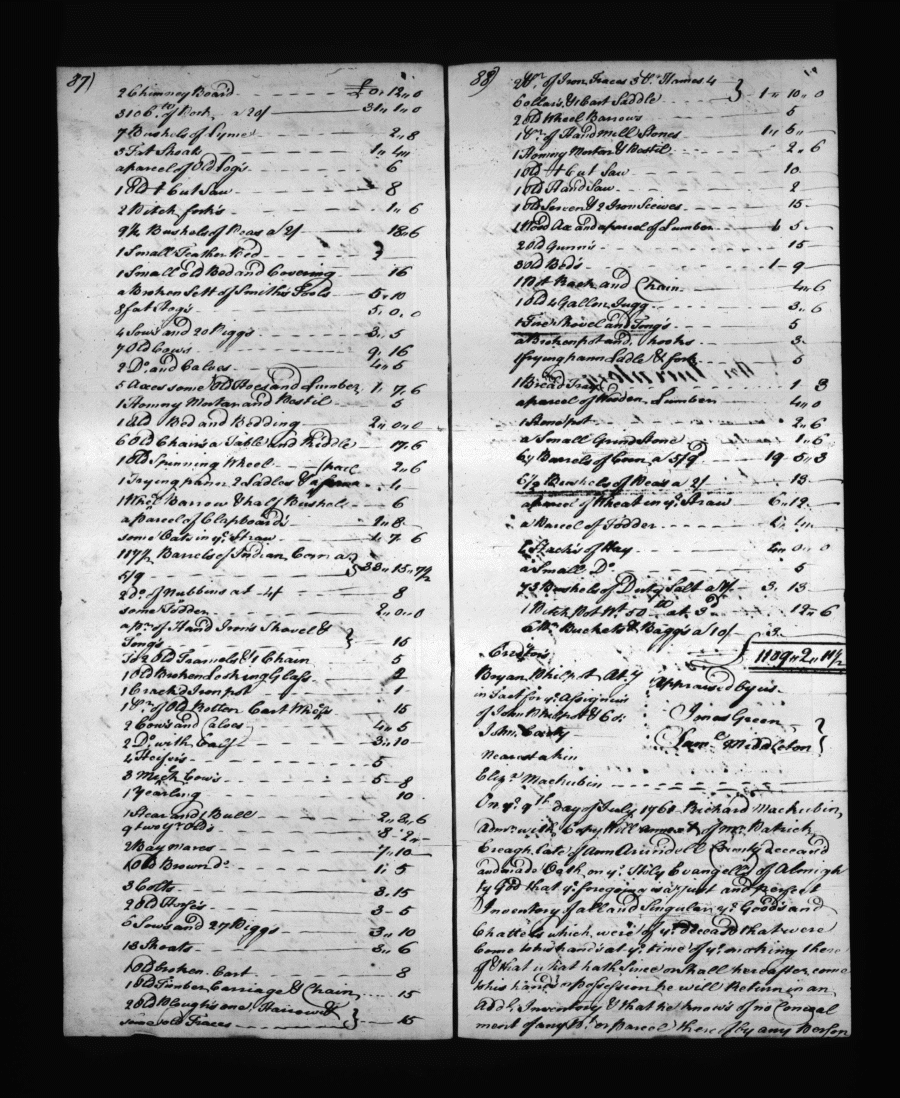 87)
2 Chimney Board £ 0,, 12,, 0
3106 lb of Pork a 20/ 31,, 1,, 0
7 Bushels of Lyme 2,, 8
3 Fat Shoats 1,, 4
a parcel of Old 6
1 Old + Cut Saw 8
2 Pitch forks 1,, 6
9¼ Bushels of Peas a 2/ 18,, 6
1 Small Feather Bed }
1 Small old Bed and Covering 16
a Broken Sett of Smith's Tools 5,, 10
fat Hogs 5,, 0,, 0
4 Sows and 20 Piggs 3,, 5
7 Old Cows 9,, 16
2 Do. and Calves 4,, 5
5 Axes some Old Hoes and Lumber 1,, 7,, 6
1 Hommy Mortar and Pestil 5
1 Old Bed and Bedding 2,, 0,, 0
6 Old Chairs a Table and Riddle 17,, 6
1 Old Spinning Wheel 2,, 6
1 Frying pann 2 Sadles &
1 Wheel Barrow & half Bushel 6
a parcel of Clapboards 2,, 8
some Oats in ye. Straw 1,, 7,, 6
117½ Barrels of Indian Corn a
5/9 } 33,, 15,, 7½
2 do. of Nubbens at 4/ 8
some Fodder 2,, 0,, 0
a pr. of Hand Irons Shovel &
Tongs } 15
2 Old Tramels & 1 Chain 5
1 Old Broken Looking Glass 2
1 Crack'd Iron pot 1
1 Pr. of Old Rotten Cart Wheels 15
2 Cows and Calves 4,, 5
2 Do. with Calf 3,, 10
4 Heifers 5
3 Milch Cows 5,, 8
1 Yearling 10
1 Stear and 1 Bull 2,, 2,, 6
9 two yr. Olds 8,, 2
2 Bay mares 7,, 10
1 Old Brown do. 1,, 5
3 Colts 3,, 15
2 Old Horses 3,, 5
6 Sows and 27 Piggs 3,, 10
18 Shoats 3,, 6
1 Old broken Cart 8
1 Old Timber Carriage & Chain 15
2 Old Ploughs one Harrow &
some old Traces } 15
88)
2 Pr. of Iron Traces 3 Hames 4
Collars & 1 Cart Saddle } 1,, 10,, 0
2 Old Wheel Barrows 5
1 Pr. of Hand Mill Stones 1,, 5
1 Hommy Mortar & Pestil 2,, 6
1 Old + Cut Saw 10
1 Old Hand Saw 2
1 Old Screen & 2 Iron Screws 15
1 Wood Axe and a parcel of Lumber 5
2 Old Gunns 15
3 Old Beds 1,, 9
1 Pot Rack and Chain 4,, 6
1 Old 4 Gallon Jugg 3,, 6
1 Fire Shovel and Tongs 5
a Broken pot and hooks 3
1 frying pann Ladle & fork 5
1 Bread Tray 1,, 3
a parcel of Wooden Lumber 4,, 0
1 Stone pot 2,, 6
a Small Grind Stone 1,, 6
67 Barrels of Corn a 5/9 19,, 5,, 3
6½ Bushels of Peas a 2/ 13
a parcel of Wheat in ye. Straw 6,, 12
a Parcel of Fodder
4 Stacks of Hay 4,, 0,, 0
a Small Do. 5
73 Bushels of Duty Salt a 1/ 3,, 13
1 Pitch Pot Wt. 50 lb at 3d 12,, 6
6 Pr. Buckets & Baggs a 10/ 3
Creditors 1109,, 2,, 11½
Bryan Philpot At. y Appraised by us
in fact for ye. Assignees
of John Philpot & Co: Jonas Green
John Carty Saml. Middleton }
nearest akin
Eliza. Mackubin
On ye. 9th. day of July 1761 Richard Mackubin
Admr. with Copy Will annext of Mr. Patrick
Creagh late of Ann Arundell County deceasd
and made Oath on ye. Holy Evangells of Almigh
ty God that ye. foregoing is a just and perfect
Inventory of all and Singular ye. Goods and
Chattels which were of ye. deceasd that were
Come to his hands at ye. time of ye. making there
of & that what hath Since or shall hereafter come
to his hands or possession he will Return in an
Addl. Inventory & that he knows of no Conceal
ment of any Pt. or Parcel thereof by any Person